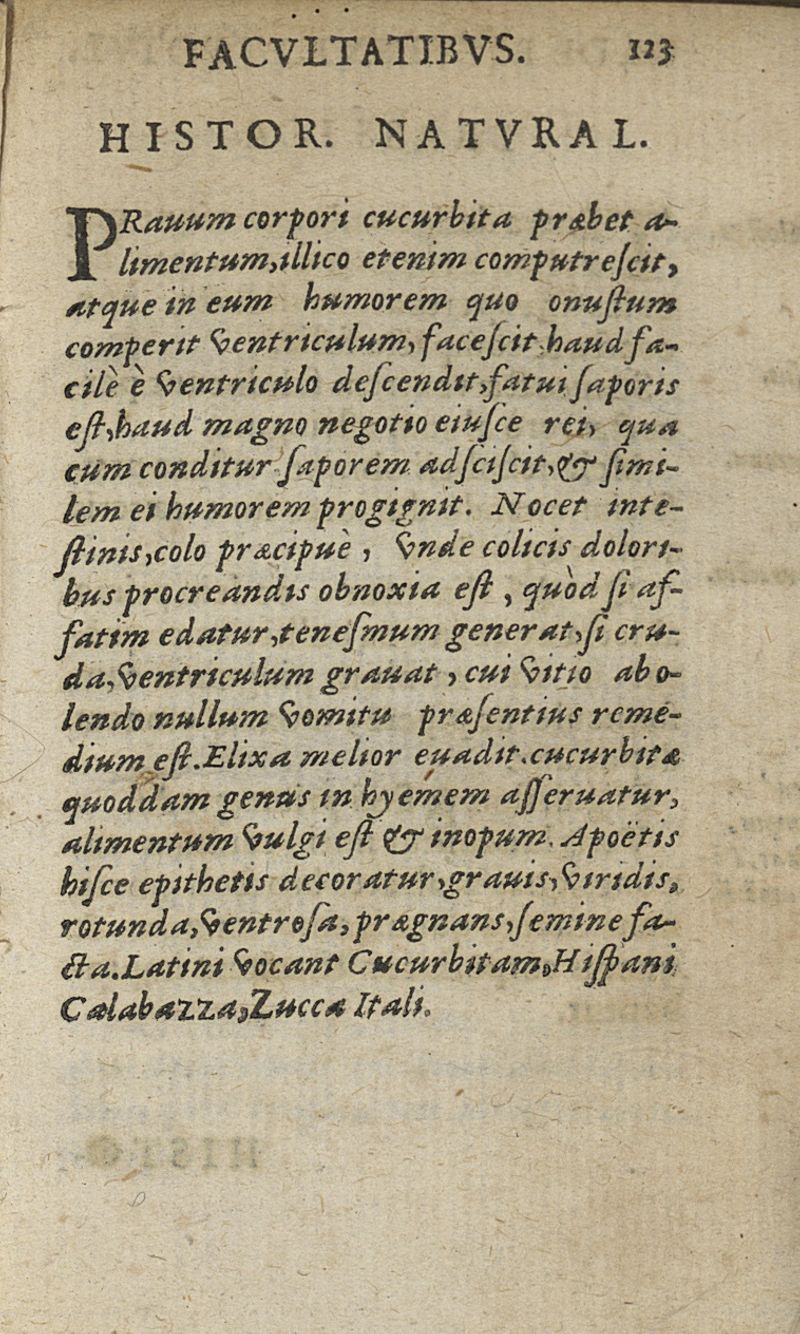 FACVLTATIBVS. 123
HISTOR. NATVRAL.
PRauum corpori cucurbita præbet a-
limentum, illico etenim computreſcit,
atque in eum humorem quo onuſtum
comperit ventriculum, faceſcit. haud fa-
cilè è ventriculo deſcendit, fatui ſaporis
eſt, haud magno negotio eiuſce rei, qua
cum conditur ſaporem adſciſcit, & ſimi-
lem ei humorem progignit. Nocet inte-
ſtinis, colo præcipuè, vnde colicis dolori-
bus procreandis obnoxia eſt, quòd ſi af-
fatim edatur, teneſmum generat, ſi cru-
da, ventriculum grauat, cui vitio abo-
lendo nullum vomitu præſentius reme-
dium eſt. Elixa melior euadit. cucurbitæ
quoddam genus in hyemem aſſeruatur,
alimentum vulgi eſt & inopum. Apoëtis
hiſce epithetis decoratur, grauis, viridis,
rotunda, ventroſa, prægnans, ſemine fa-
cta. Latini vocant Cucurbitam, Hiſpani
Calabazza, Zucca Itali.